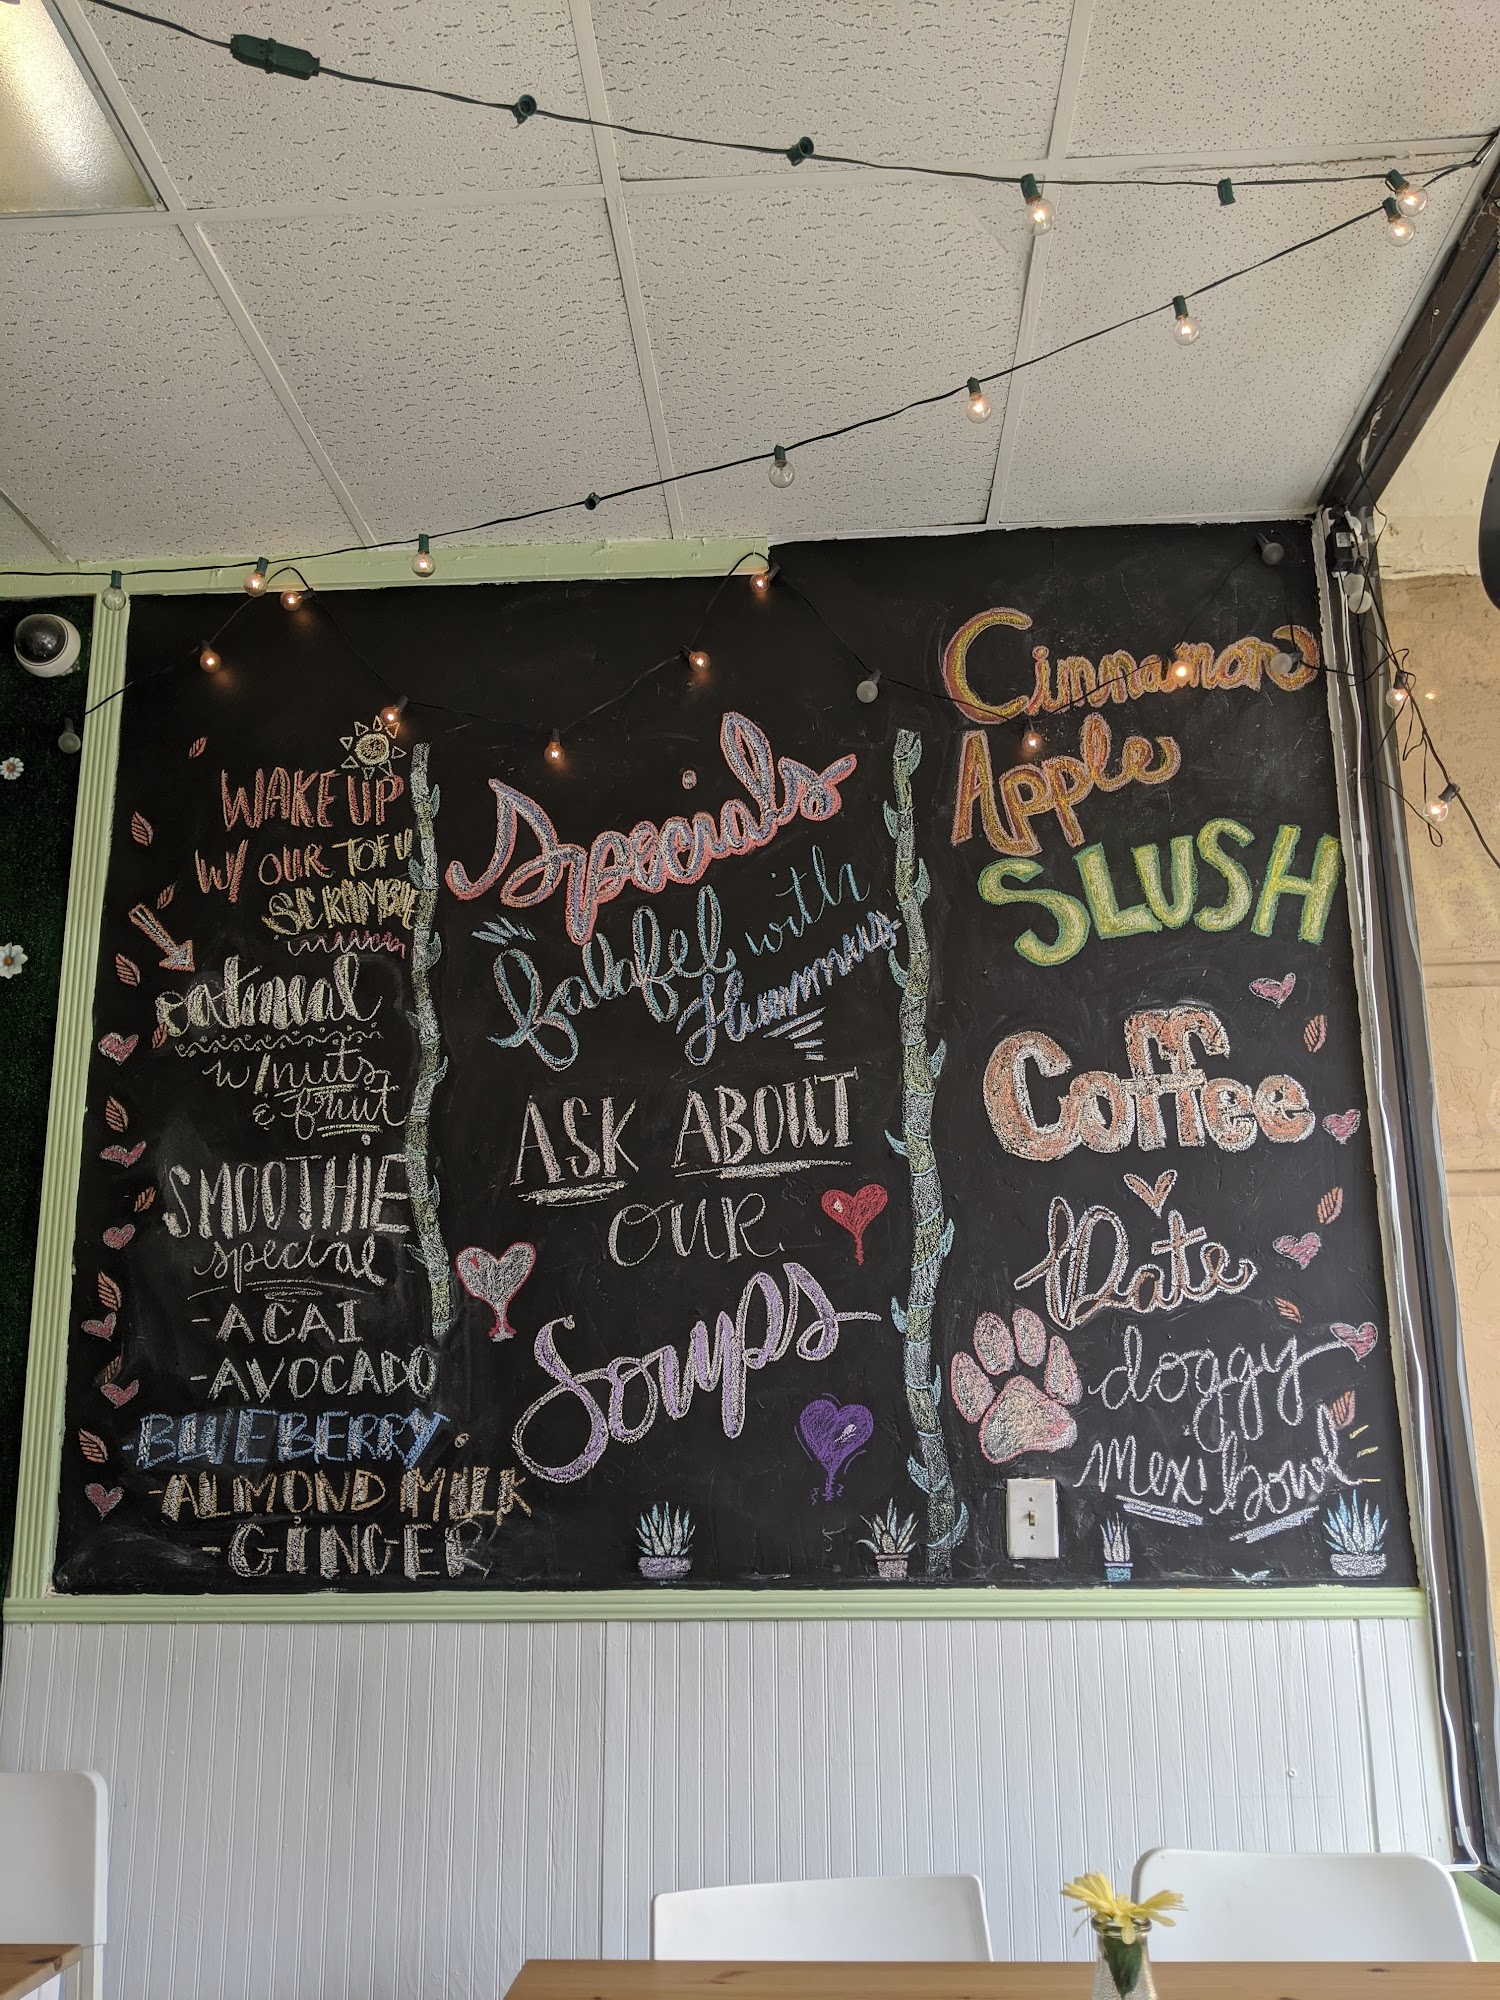 WAKE UP
W/ OUR TOFU
SCRAMBLE
oatmeal
w/nuts
& fruit
SMOOTHIE
special
-ACAI
-AVOCADO
-BLUEBERRY
-ALMOND MILK
-GINGER
Specials
falafel with
Hummus
ASK ABOUT
OUR
Soups
Cinnamon
Apple
SLUSH
Coffee
Date
doggy
Mexi bowl